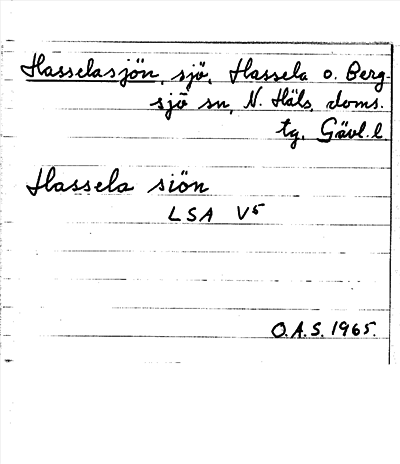 Hasselasjön, sjö, Hassela o. Berg-
sjö sn, N. Häls. doms.
tg, Gävl. l
Hassela siön
LSA V5
O.A.S. 1965.